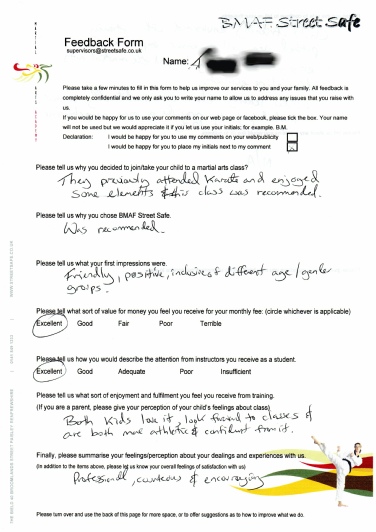 BMAF Street Safe
MARTIAL
ARTS
Feedback Form
supervisors@streetsafe.co.uk
Name:
Please take a few minutes to fill in this form to help us improve our services to you and your family. All feedback is
completely confidential and we only ask you to write your name to allow us to address any issues that you raise with
us.
If you would be happy for us to use your comments on our web page or facebook, please tick the box. Your name
will not be used but we would appreciate it if you let us use your initials; for example, B.M.
Declaration: I would be happy for you to use my comments on your web/publicity
I would be happy for you to place my initials next to my comment
Please tell us why you decided to join/take your child to a martial arts class?
They previously attended Karate and enjoyed
Some elements & this class was recommended.
Please tell us why you chose BMAF Street Safe.
Was recommended.
Please tell us what your first impressions were.
Friendly, positive, inclusive of different age/gender
groups.
Please tell us what sort of value for money you feel you receive for your monthly fee: (circle whichever is applicable)
Excellent Good Fair Poor Terrible
Please tell us how you would describe the attention from instructors you receive as a student.
Excellent Good Adequate Poor Insufficient
Please tell us what sort of enjoyment and fulfilment you feel you receive from training.
(If you are a parent, please give your perception of your child's feelings about class)
Both kids love it, look forward to classes &
are both more athletic & confident from it.
Finally, please summarise your feelings/perception about your dealings and experiences with us.
(In addition to the items above, please let us know your overall feelings of satisfaction with us)
Professional, courteous & encouraging
Please turn over and use the back of this page for more space, or to offer suggestions as to how to improve what we do.
WWW.STREETSAFE.CO.UK